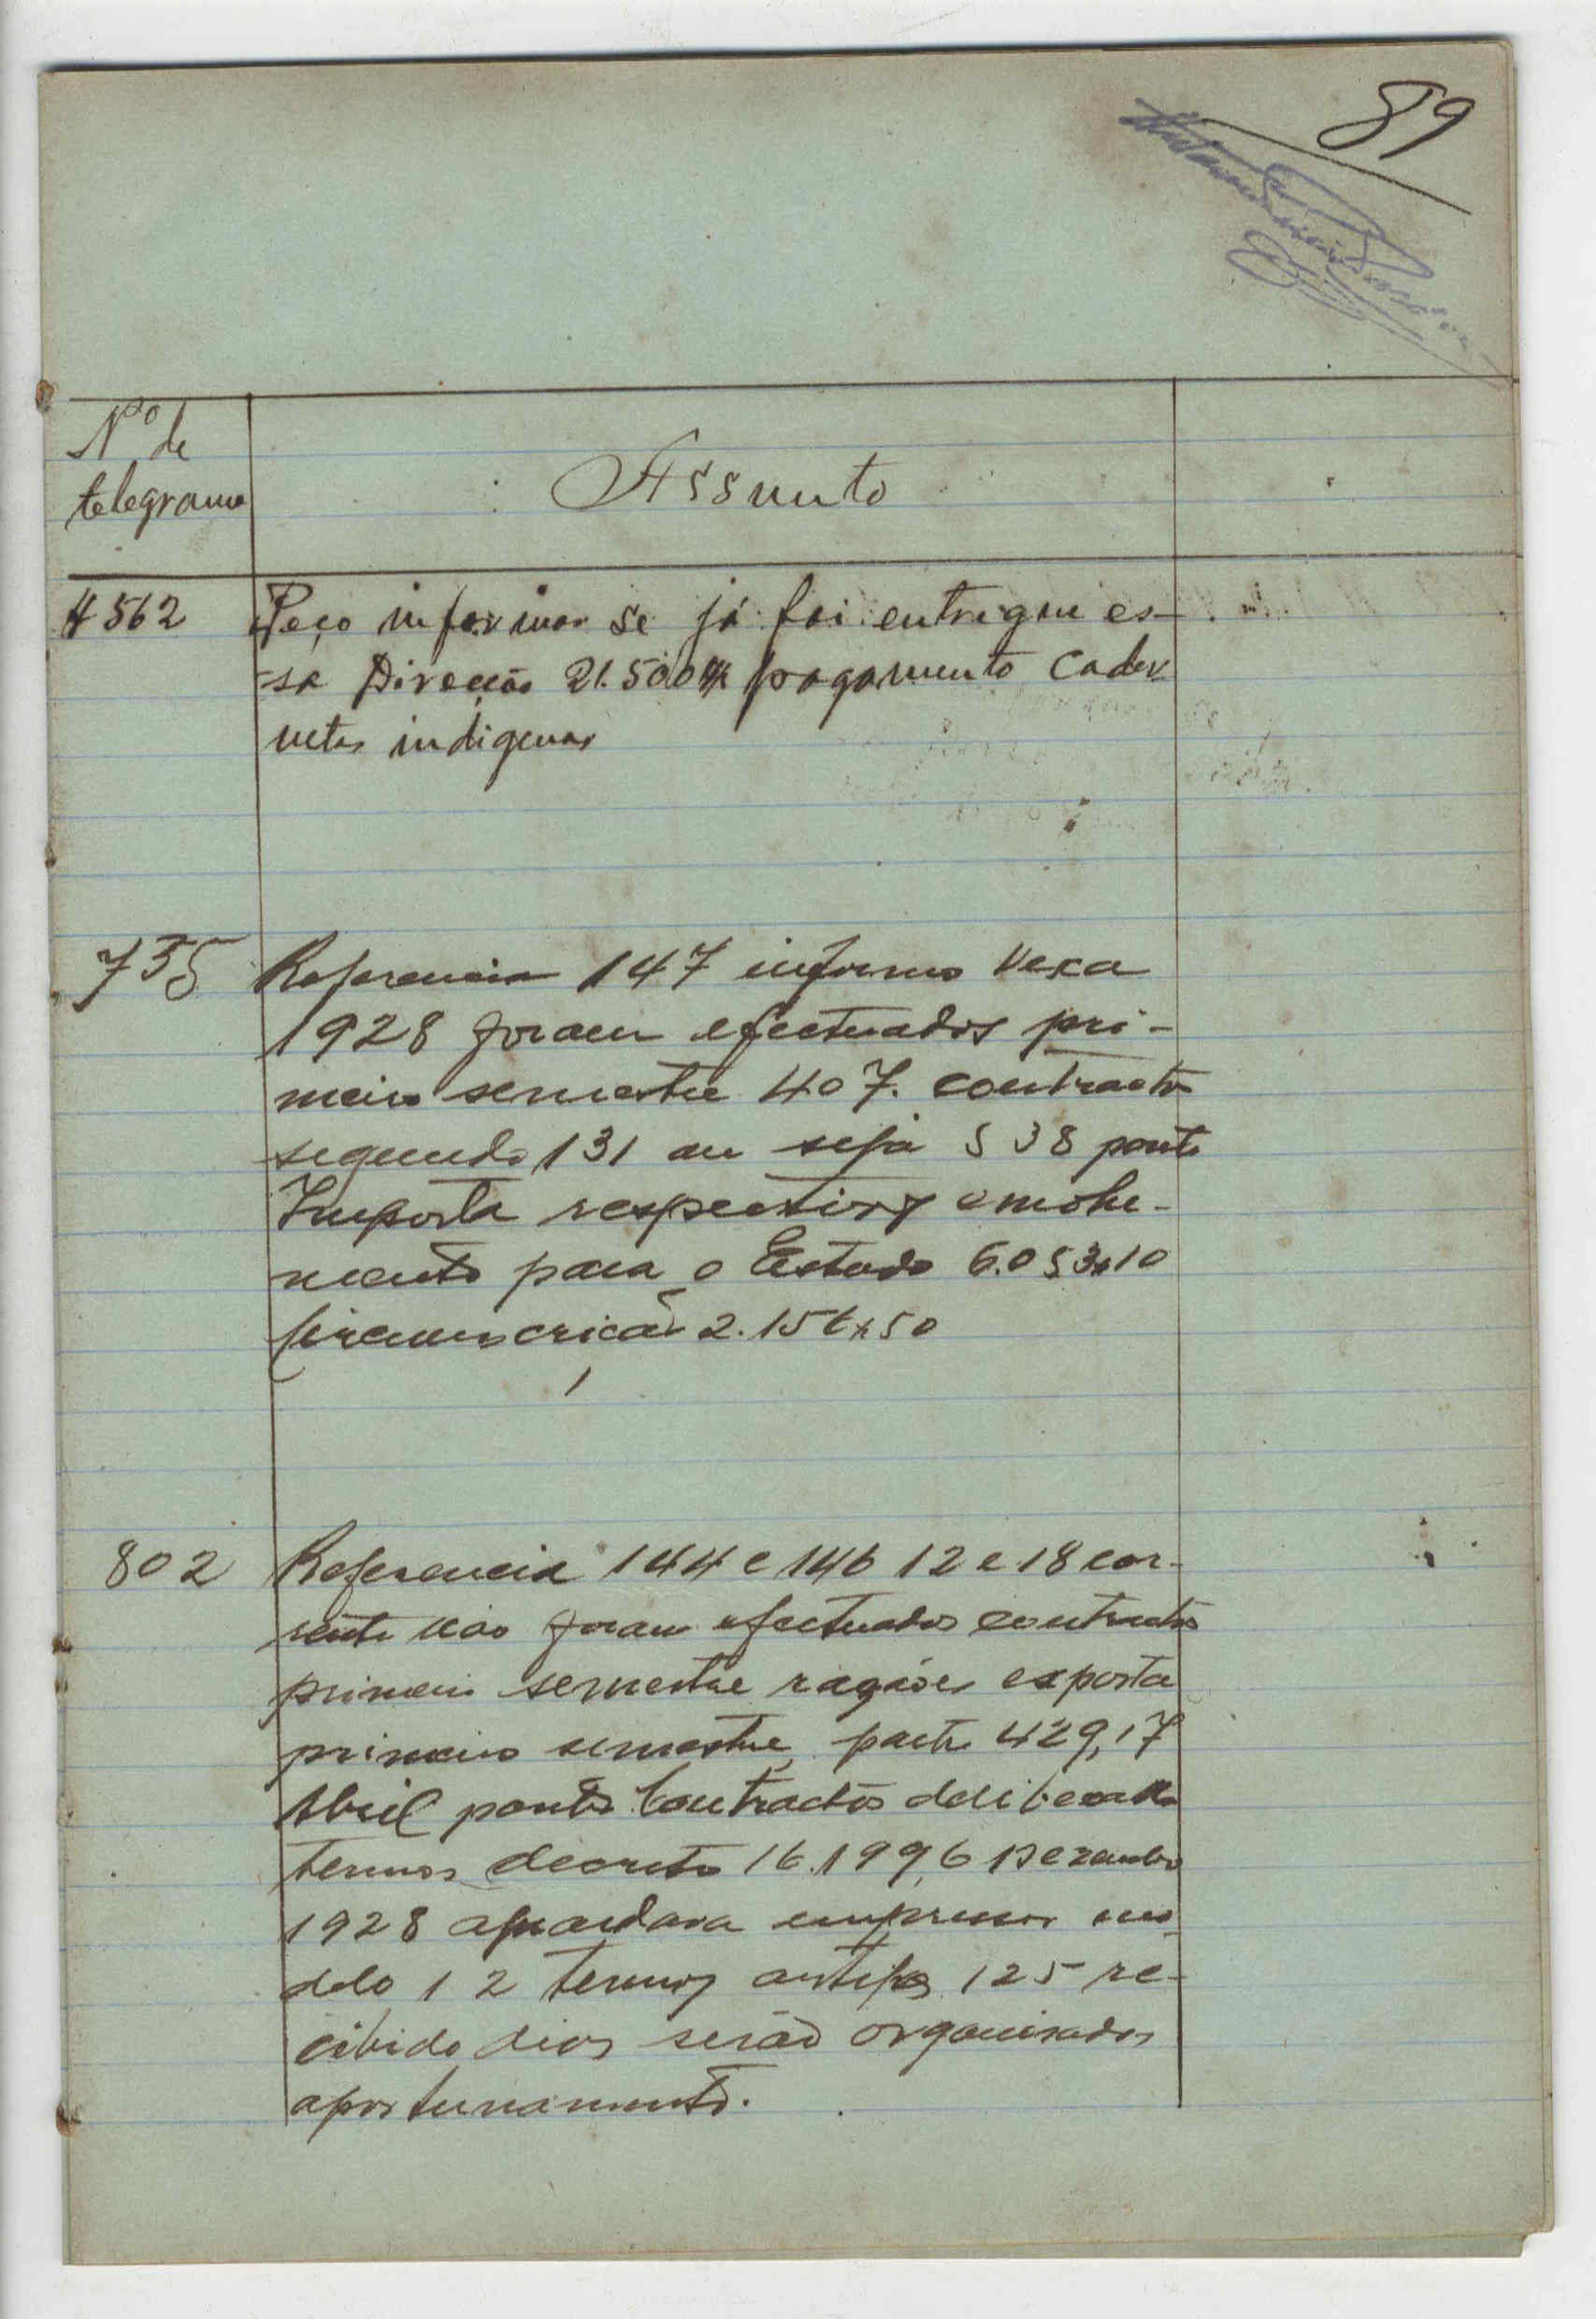 89
Nº de
telegrama
Assunto
4562 Peço informar se já foi entregue es-
-sa Direcção 21.500 pagamento cader
netas indigenas
735 Referencia 147 informo Vexa
1928 foram efectuados pri-
meiro semestre 407. contractos
segundo 131 ou seja 538 ponto
Importa respectivos emolu-
mento para o Estado 6.053$10
Circunscrição 2.156$50
802 Referencia 144 e 146 12 e 18 cor-
rente não foram efectuados contractos
primeiro semestre razões exposta
primeiro semestre parte 429,17
Abril ponto Contractos
termos decreto 16.199,6 Dezembro
1928 aguardava impressos mo
delo 1 2 termos artigos 125 re-
cibido dias serão organisados
oportunamente.